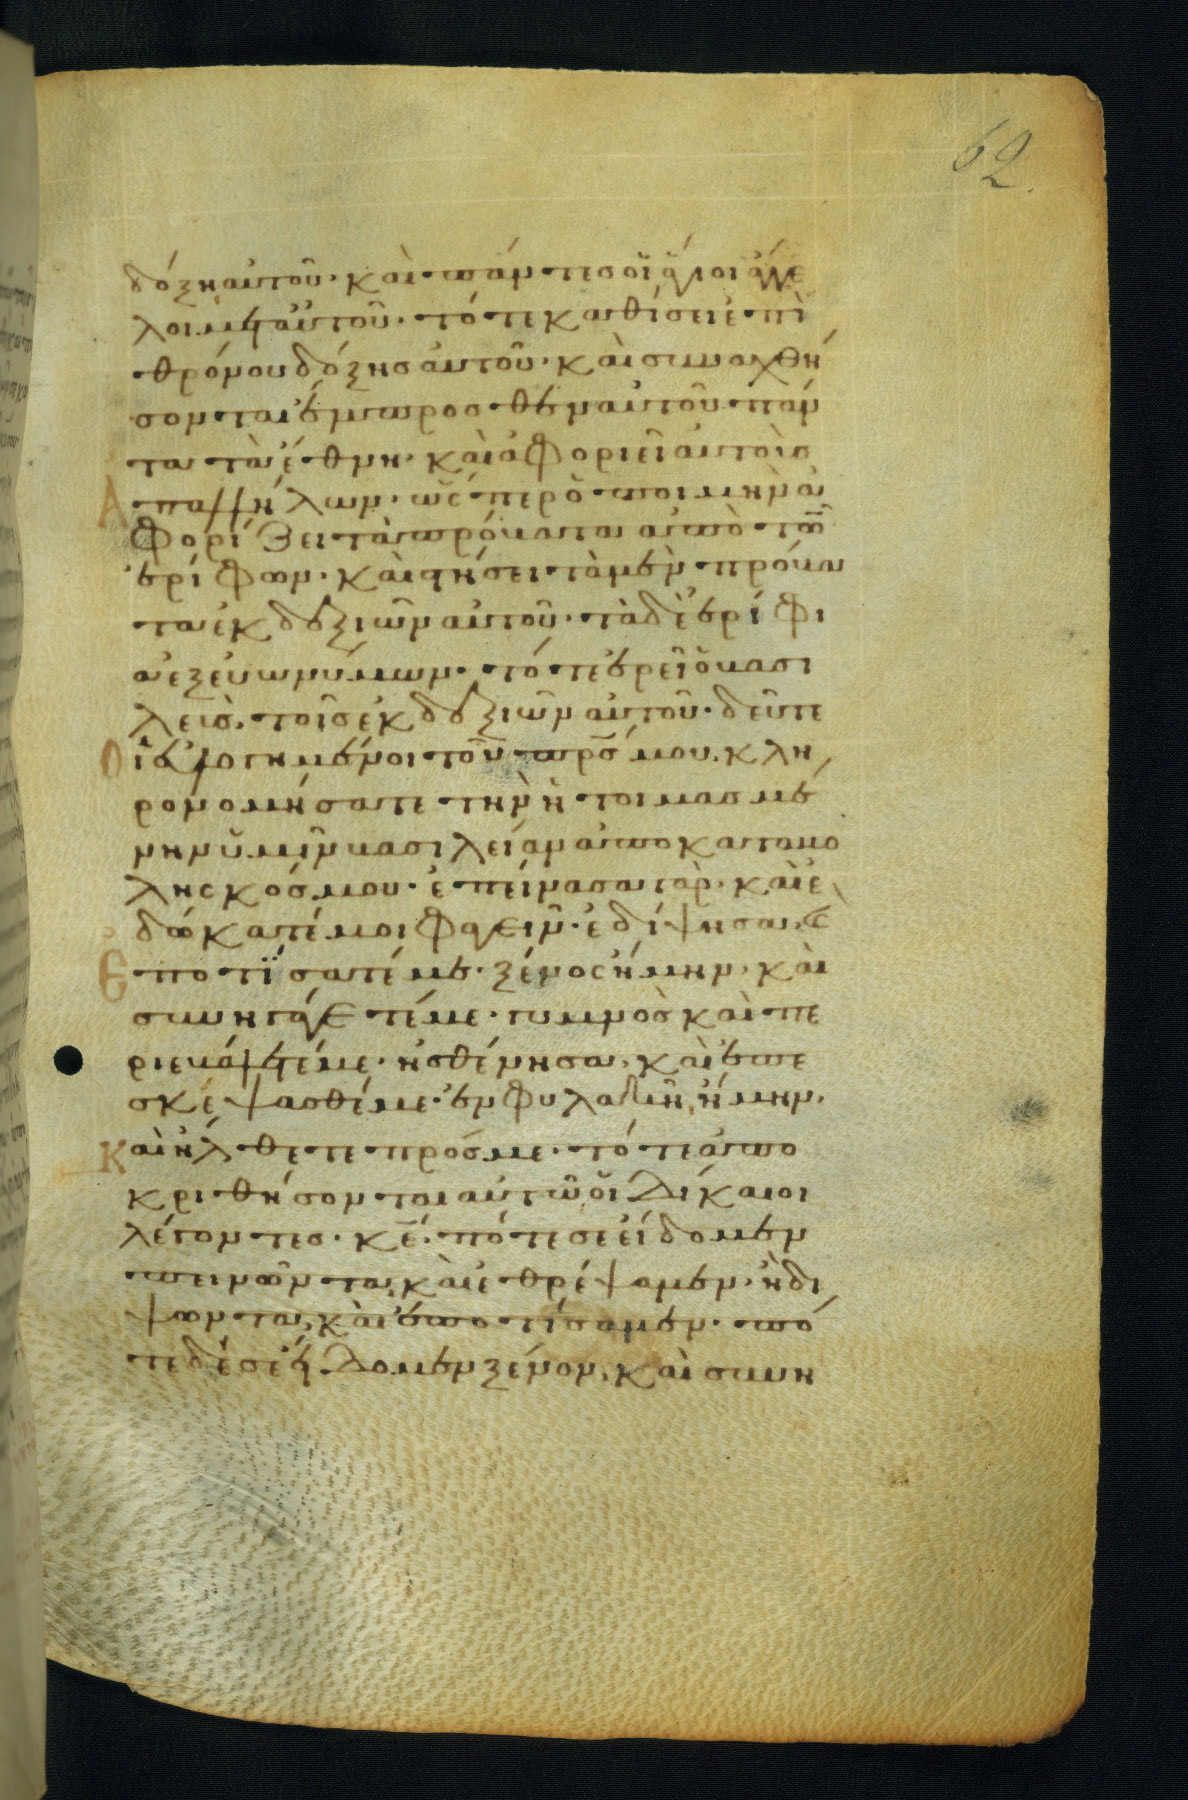 62
δόξη αὐτοῦ· καὶ πάντες οἱ ἅγιοι ἄγγε
λοι μετ αὐτοῦ· τότε καθίσει ἐπὶ
θρόνου δόξης αὐτοῦ· καὶ συναχθή
σονται ἔμπροσθεν αὐτοῦ πάν
τα τὰ ἔθνη· καὶ ἀφοριεῖ αὐτοὺς
ἀπ ἀλλήλων· ὥσπερ ὁ ποιμὴν ἀ
φορίζει τὰ πρόβατα ἀπὸ τῶν
ἐρίφων· καὶ στήσει τὰ μὲν πρόβα
τα ἐκ δεξιῶν αὐτοῦ· τὰ δὲ ἐρίφι
α ἐξ εὐωνύμων· τότε ἐρεῖ ὁ βασι
λεὺς τοῖς ἐκ δεξιῶν αὐτοῦ· δεῦτε
Οἱ εὐλογημένοι τοῦ πρς μου· κλη
ρονομήσατε τὴν ἡτοιμασμέ
νην ὑμῖν βασιλείαν ἀπὸ καταβο
λῆς κόσμου· ἐπείνασα γὰρ· καὶ ἐ
δώκατέ μοι φαγεῖν· ἐδίψησα, ϗ
Ἐποτίσατέ με· ξένος ἤμην· καὶ
συνηγάγετέ με· γυμνὸς καὶ πε
ριεβάλετέ με· ἠσθένησα, καὶ ἐπε
σκέψασθέ με· ἐν φυλακῇ ἤμην,
Καὶ ἤλθετε πρός με· τότε ἀπο
κριθήσονται αὐτῶ οἱ δίκαιοι
λέγοντες· κε· πότε σε εἴδομεν
πεινῶντα, καὶ ἐθρέψαμεν· ἢ δι
ψῶντα, καὶ ἐποτίσαμεν· πό
τε δέ σε εἴδομεν ξένον, καὶ συνη